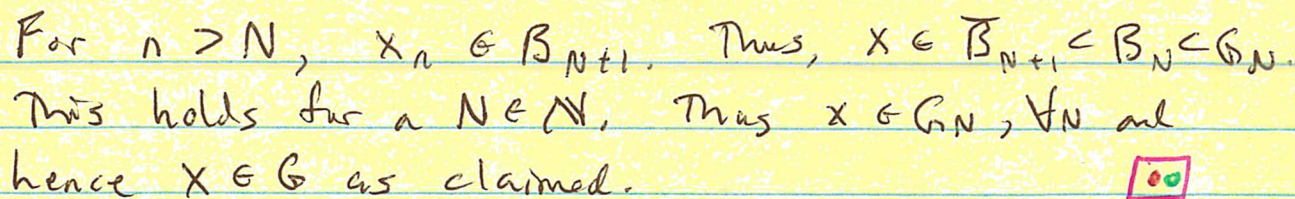 For n > N, xₙ ∈ B_{N+1}. Thus, x ∈ B̅_{N+1} ⊂ B_N ⊂ G_N.
This holds for a N ∈ ℕ. Thus x ∈ G_N, ∀N and
hence x ∈ G as claimed.